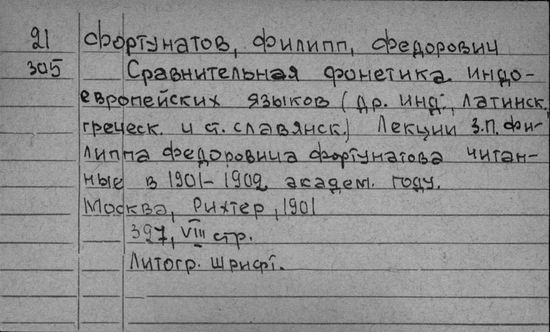 21 Фортунатов, Филипп, Федорович
305 Сравнительная фонетика индо-
европейских языков (др. инд., латинск.,
греческ. и ст. славянск.) Лекции З.П. Фи-
липпа Федоровича Фортунатова читан-
ные в 1901-1902 академ. году.
Москва, Рихтер, 1901
397, VIII стр.
Литогр. шрифт.